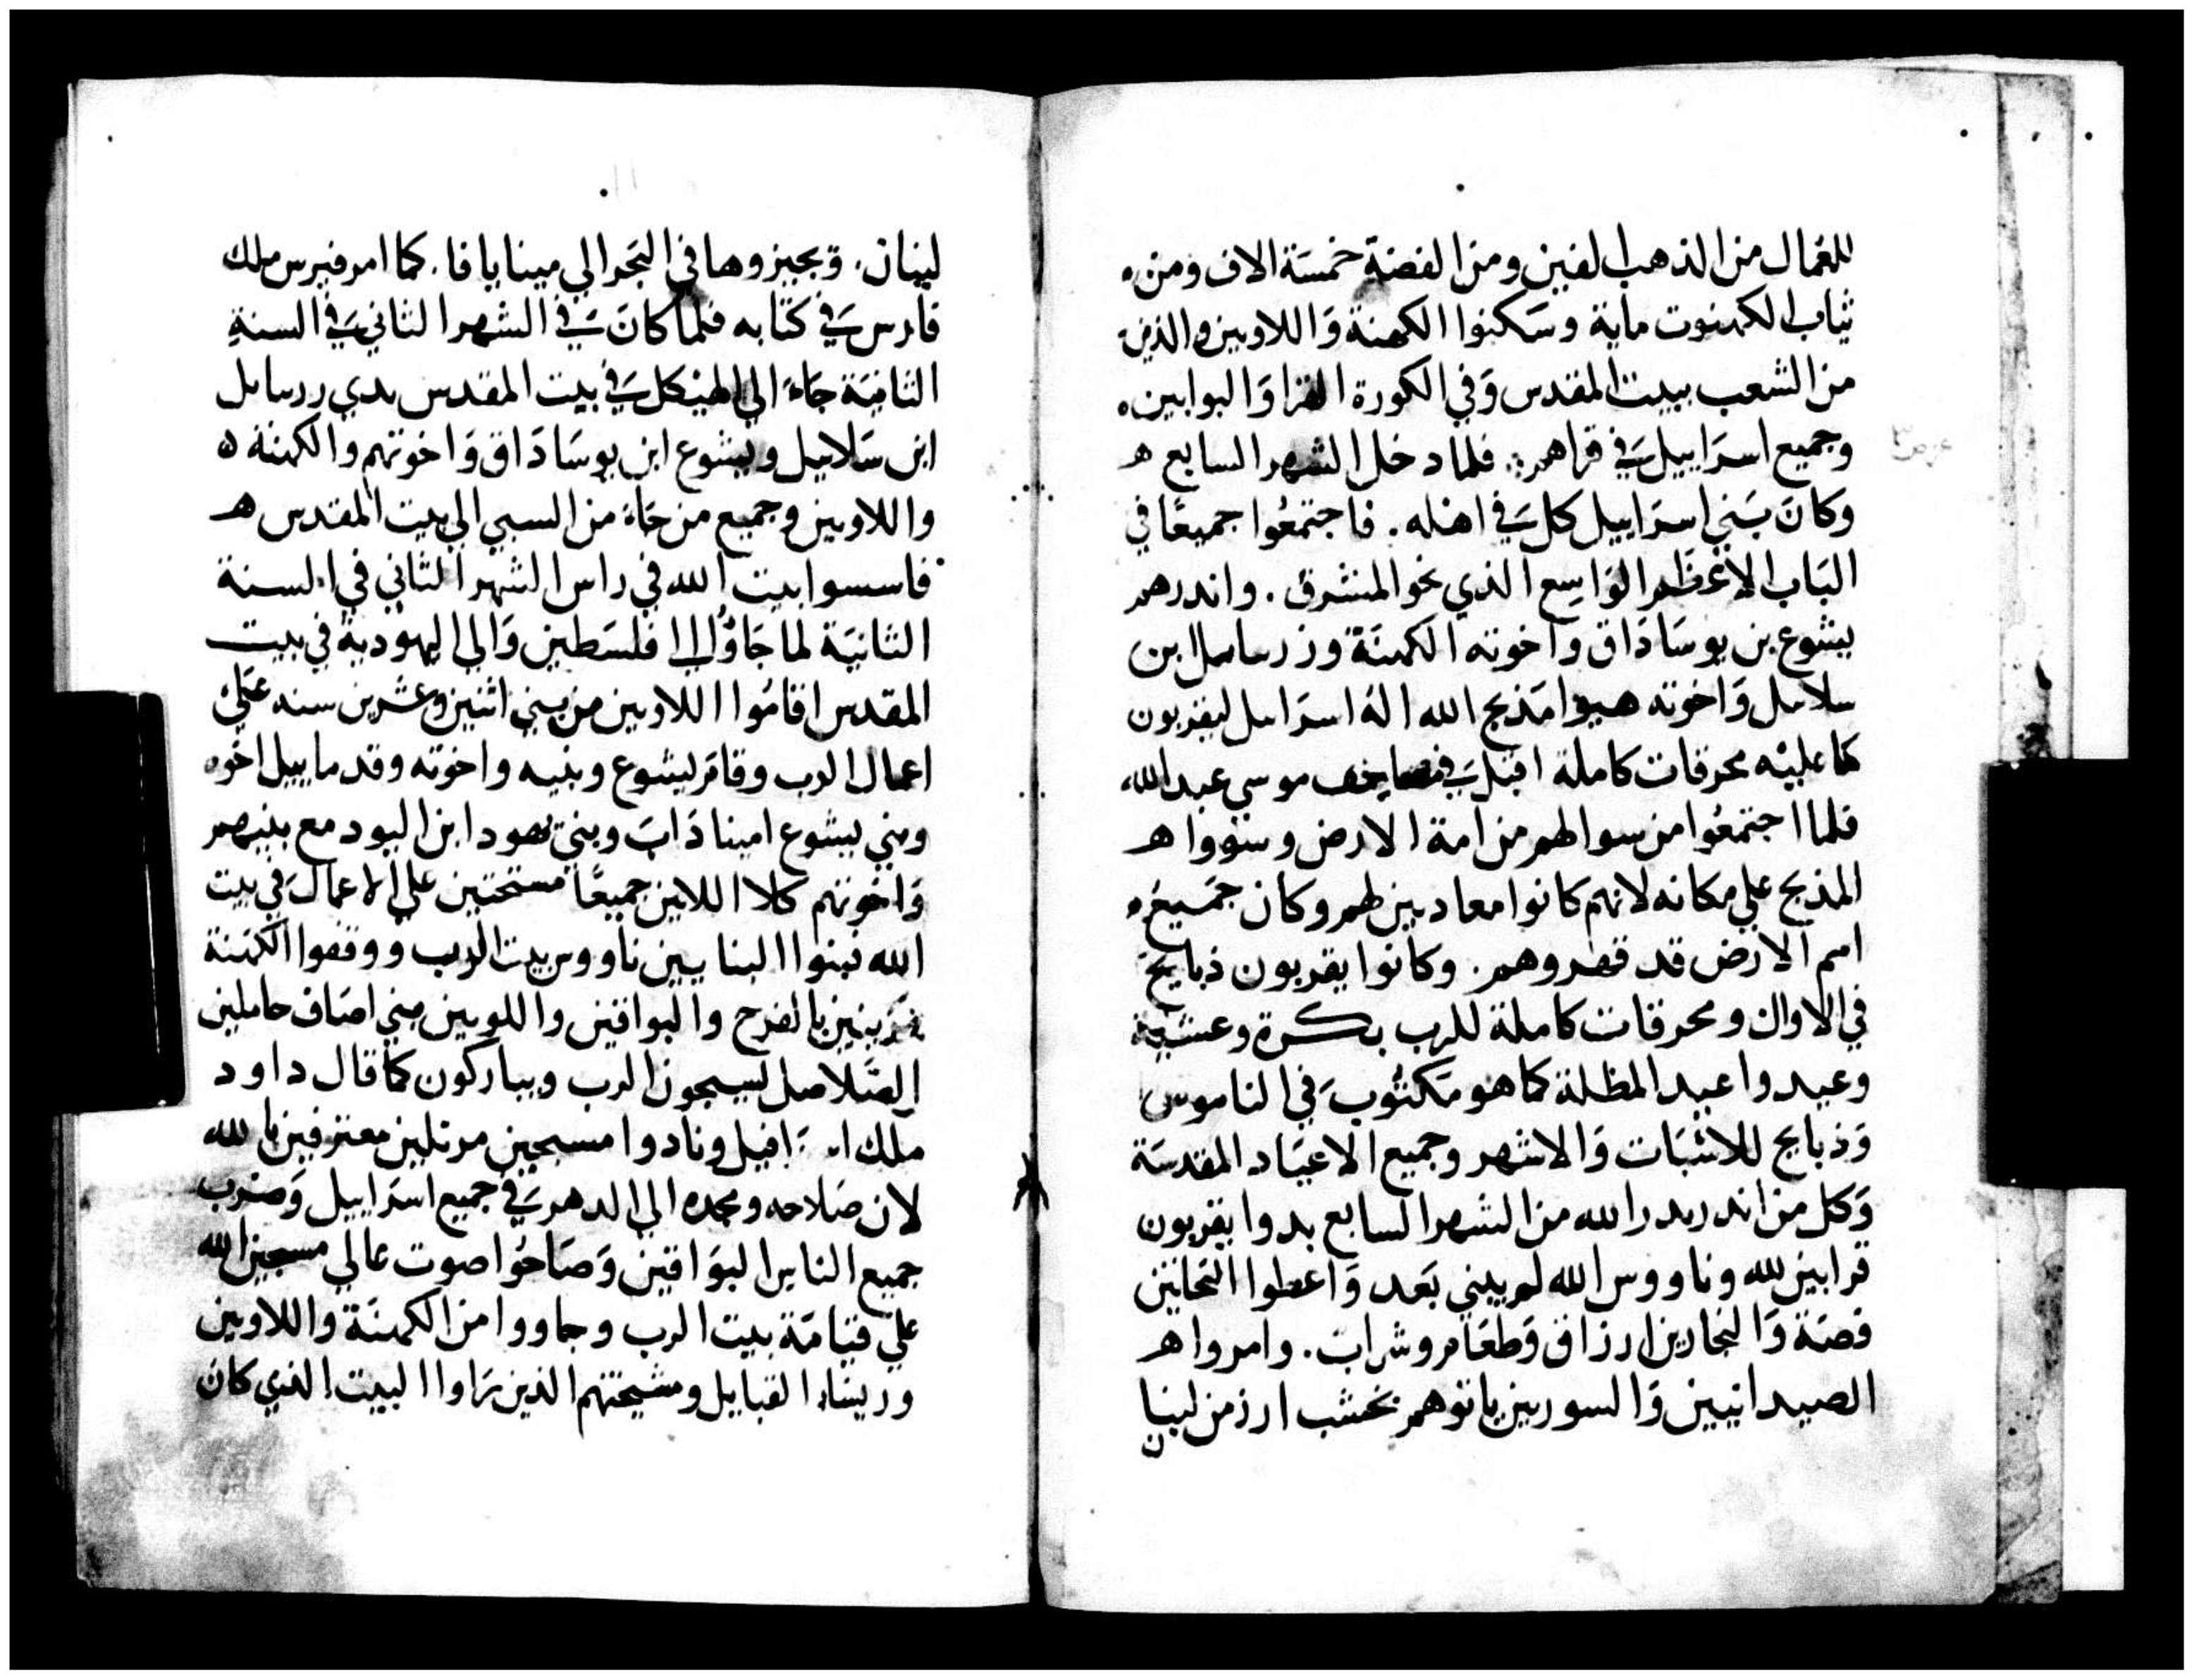 للغمال من الذهب الفين ومن الفضة خمسة الاف ومن
ثياب الكهنوت ماية وسكنوا الكهنة واللاويين والذين
من الشعب ببيت المقدس وفي الكورة القرا والبوابين
وجميع اسراييل في قراهم فلما دخل الشهر السابع
وكان بني اسراييل كل في اهله . فاجتمعوا جميعا في
الباب الاعظم الواسع الذي نحو المشرق . واندرهم
يشوع بن يوساداق واخوته الكهنة وزرسابيل ابن
سلاسل واخوته هيوا مذبح الله اله اسرايل ليقربون
عليه محرقات كاملة في مصاحف موسي عبد الله
فلما اجتمعوا من سوالهم من امة الارض وسووا
المذبح علي مكانه لانهم كانوا معاديين لهم وكان جميع
امم الارض قد قهروهم . وكانوا يقربون ذبايح
في الاوان ومحرقات كاملة للرب بكرة وعشية
وعيدوا عيد المظلة كما هو مكتوب في الناموس
وذبايح للاثبات والاشهر وجميع الاعياد المقدسة
وكل من اندر ندرا لله من الشهر السابع بدوا يقربون
قرابين لله وناووس الله لم يبني بعد واعطوا النحاتين
فضة والنجارين ارزاق وطعام وشراب . وامروا
الصيدانيين والسوريين ياتوهم بخشب ارز من لبنان
لبنان . ويجيزوها في البحر الي مينا يافا . كما امر فيرس ملك
فارس في كتابه فلما كان في الشهر الثاني في السنة
الثانية جاء الي الهيكل في بيت المقدس بدي زرسابل
ابن سلاييل ويشوع ابن يوساداق واخوتهم والكهنة
واللاويين وجميع من جاء من السبي الي بيت المقدس
فاسسوا بيت الله في راس الشهر الثاني في السنة
الثانية لما جاوا الا فلسطين والي اليهودية في بيت
المقدس اقاموا اللاويين من بني اثنين وعشرين سنه علي
اعمال الرب وقام ليشوع وبنيه واخوته وقدماييل اخوه
وبني يشوع اميناداب وبني يهودا ابن اليود مع بنيهم
واخوتهم كلا اللاين جميعا مستحتين علي الاعمال في بيت
الله فبنوا البنايين ناووس بيت الرب ووقفوا الكهنة
بالفرح والبواقين واللويين بني اصاف حاملين
الصلاصل يسبحون الرب ويباركون كما قال داود
ملك ونادوا مسبحين مرتلين معترفين بالله
لان صلاحه ومجده الي الدهر في جميع اسراييل وضرب
جميع الناس البواقين وصاحوا صوت عالي مسبحين الله
علي قيامة بيت الرب وجاووا من الكهنة واللاويين
وريساء القبايل ومشيختهم الذين راوا البيت الذي كان